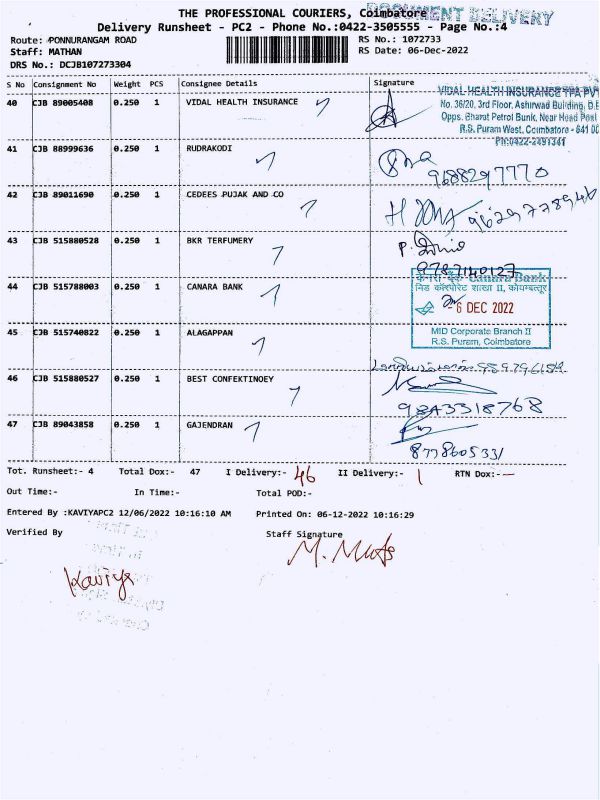 THE PROFESSIONAL COURIERS, Coimbatore
DOCUMENT DELIVERY
Delivery Runsheet - PC2 - Phone No.:0422-3505555 - Page No.:4
Route: PONNURANGAM ROAD RS No.: 1072733
Staff: MATHAN RS Date: 06-Dec-2022
DRS No.: DCJB107273304
S No Consignment No Weight PCS Consignee Details Signature
40 CJB 89005408 0.250 1 VIDAL HEALTH INSURANCE
VIDAL HEALTH INSURANCE TPA PVT
No. 36/20, 3rd Floor, Ashirwad Building, D.B
Opps. Bharat Petrol Bunk, Near Head Post
R.S. Puram West, Coimbatore - 641 00
PH:0422-2491341
41 CJB 88999636 0.250 1 RUDRAKODI
9688297770
42 CJB 89011690 0.250 1 CEDEES PUJAK AND CO
9629778946
43 CJB 515880528 0.250 1 BKR TERFUMERY
9787140127
44 CJB 515788003 0.250 1 CANARA BANK
केनरा बैंक Canara Bank
मिड कॉर्पोरेट शाखा II, कोयम्बत्तूर
- 6 DEC 2022
MID Corporate Branch II
R.S. Puram, Coimbatore
45 CJB 515740822 0.250 1 ALAGAPPAN
46 CJB 515880527 0.250 1 BEST CONFEKTINOEY
9843318768
47 CJB 89043858 0.250 1 GAJENDRAN
877860533/
Tot. Runsheet:- 4 Total Dox:- 47 I Delivery:- 46 II Delivery:- 1 RTN Dox:- -
Out Time:- In Time:- Total POD:-
Entered By :KAVIYAPC2 12/06/2022 10:16:10 AM Printed On: 06-12-2022 10:16:29
Verified By Staff Signature
Kaviya